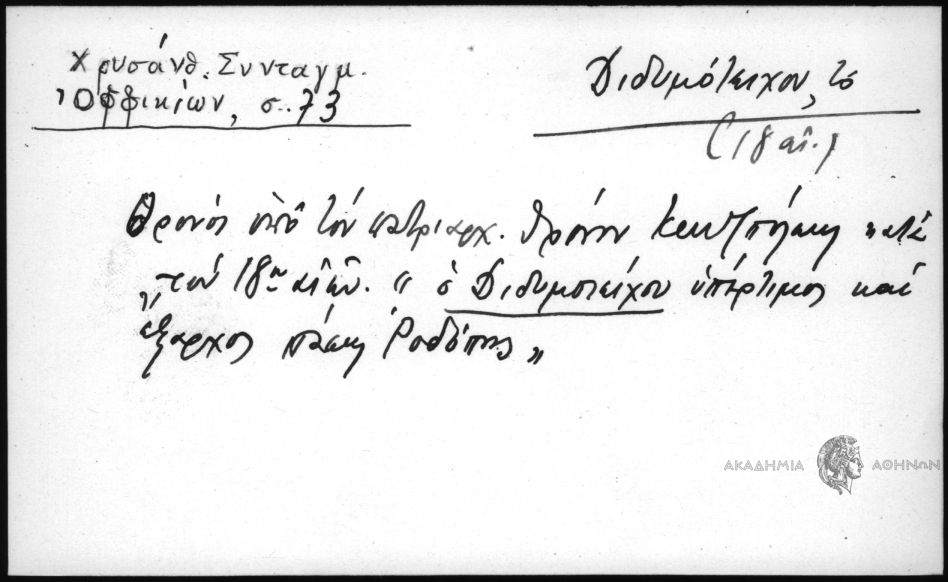 Χρυσάνθ. Συνταγμ.
Ὀφφικίων, σ. 73
Διδυμότειχον, τό
(18 αἰ.)
Θρονος ὑπὸ τὸν πατριαρχ. θρόνον Κων/πόλεως κατὰ
τὸν 18ον αἰῶν. "ὁ Διδυμοτείχου ὑπέρτιμος καὶ
ἔξαρχος πάσης Ῥοδόπης"
ΑΚΑΔΗΜΙΑ ΑΘΗΝΩΝ